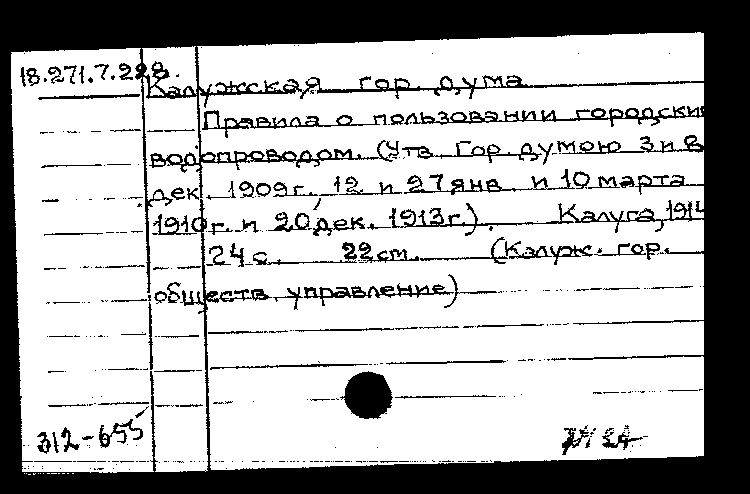 18.271.7.228.
Калужская гор. дума
Правила о пользовании городским
водопроводом. (Утв. Гор. думою 3 и 8
дек. 1909г., 12 и 27 янв. и 10 марта
1910г. и 20 дек. 1913г.). Калуга, 1914
24 с. 22 ст. (Калуж. гор.
обществ. управление)
312-655